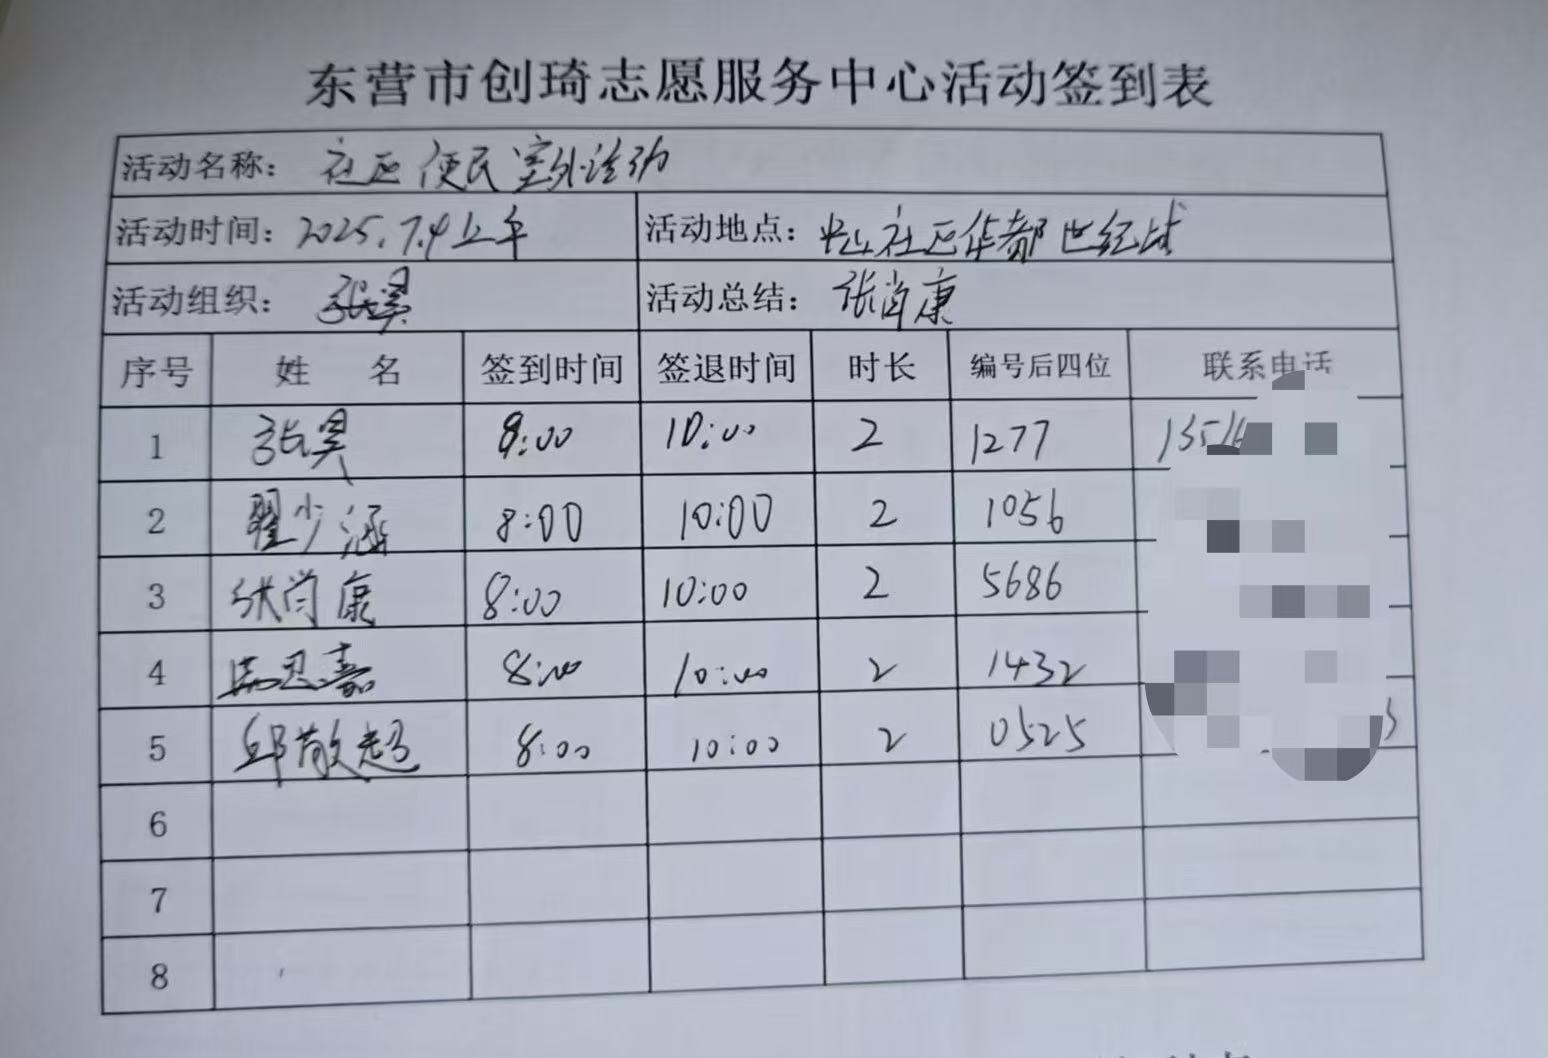 东营市创琦志愿服务中心活动签到表
活动名称： 社区便民室外活动
活动时间：2025.7.4上午 活动地点： 社区华都世纪城
活动组织： 张昊 活动总结： 张肖康
序号 姓 名 签到时间 签退时间 时长 编号后四位 联系电话
1 张昊 8:00 10:00 2 1277
2 翟少涵 8:00 10:00 2 1056
3 张肖康 8:00 10:00 2 5686
4 思嘉 8:00 10:00 2 1432
5 邱敬超 8:00 10:00 2 0525
6
7
8